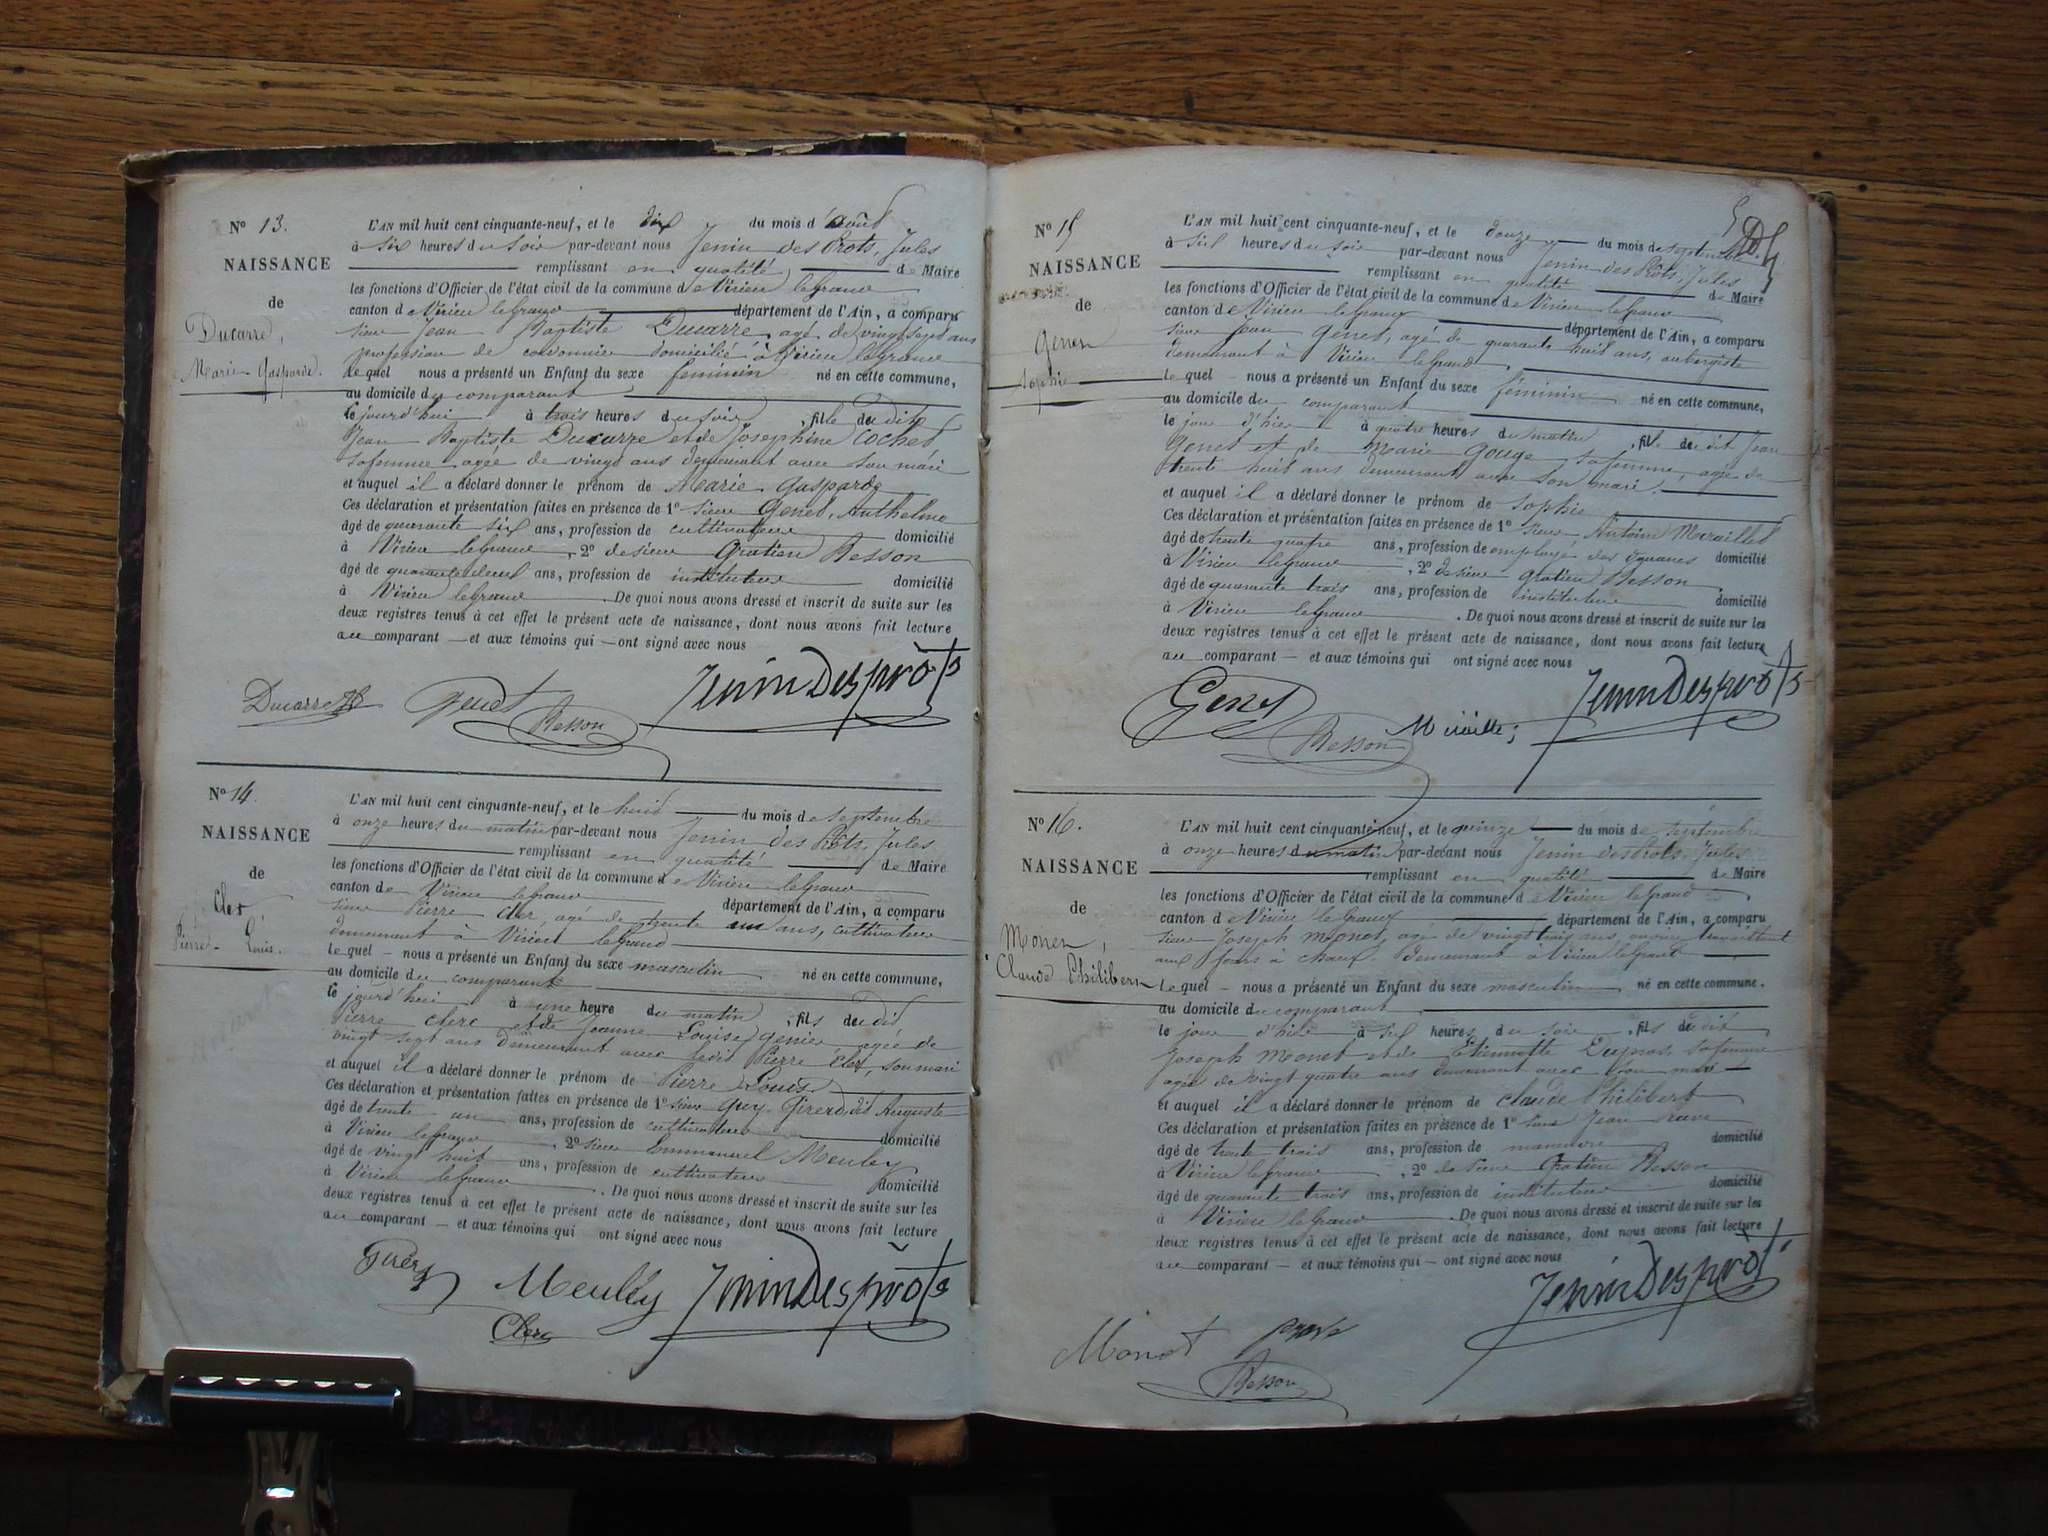 N° 13.
NAISSANCE
de
Ducarre,
Marie Gasparde.
L'AN mil huit cent cinquante-neuf, et le dix du mois d'août
à six heures du soir par-devant nous Jenin des Prots, Jules
remplissant en qualité de Maire
les fonctions d'Officier de l'état civil de la commune de Virieu legrand
canton de Virieu legrand département de l'Ain, a comparu
sieur Jean Baptiste Ducarre, agé de vingt sept ans
profession de cordonnier domicilié à Virieu legrand
lequel nous a présenté un Enfant du sexe féminin né en cette commune,
au domicile du comparant
le jourd'hui à trois heures du soir, fille du dit
Jean Baptiste Ducarre et de Josephine Cochet
sa femme agée de vingt ans demeurant avec son mari
et auquel il a déclaré donner le prénom de Marie Gasparde
Ces déclaration et présentation faites en présence de 1° sieur Genet, Anthelme
âgé de quarante six ans, profession de cultivateur domicilié
à Virieu legrand, 2° de sieur Gratien Besson
âgé de quarante deux ans, profession de instituteur domicilié
à Virieu legrand. De quoi nous avons dressé et inscrit de suite sur les
deux registres tenus à cet effet le présent acte de naissance, dont nous avons fait lecture
au comparant — et aux témoins qui — ont signé avec nous
Ducarre JB Genet Besson Jenin Des prôts
N° 14.
NAISSANCE
de
Cler
Pierre-Louis.
L'AN mil huit cent cinquante-neuf, et le huit du mois de septembre
à onze heures du matin par-devant nous Jenin des Prôts, Jules
remplissant en qualité de Maire
les fonctions d'Officier de l'état civil de la commune de Virieu-legrand
canton de Virieu legrand département de l'Ain, a comparu
sieur Pierre Cler, agé de trente un ans, cultivateur
demeurant à Virieu legrand
lequel - nous a présenté un Enfant du sexe masculin né en cette commune,
au domicile du comparant
le jourd'hui à une heure du matin, fils du dit
Pierre Clerc et de Jeanne Louise Genier agée de
vingt sept ans demeurant avec ledit Pierre Cler, son mari
et auquel il a déclaré donner le prénom de Pierre Louis
Ces déclaration et présentation faites en présence de 1° sieur Guy-Girerd, dit Auguste
âgé de trente un ans, profession de cultivateur domicilié
à Virieu legrand, 2° sieur Emmanuel Meuley
âgé de vingt huit ans, profession de cultivateur domicilié
à Virieu legrand. De quoi nous avons dressé et inscrit de suite sur les
deux registres tenus à cet effet le présent acte de naissance, dont nous avons fait lecture
au comparant — et aux témoins qui ont signé avec nous
Meuley Jenin Des prôts
Clerc
N° 15
NAISSANCE
de
Genet
Sophie
L'AN mil huit cent cinquante-neuf, et le douze du mois de septembre
à six heures du soir par-devant nous Jenin des Prôts, Jules
remplissant en qualité de Maire
les fonctions d'Officier de l'état civil de la commune de Virieu legrand
canton de Virieu legrand département de l'Ain, a comparu
sieur Jean Genet, agé de quarante huit ans, aubergiste
demeurant à Virieu legrand
lequel - nous a présenté un Enfant du sexe féminin né en cette commune,
au domicile du comparant
le jour d'hier à quatre heures du matin, fille du dit Jean
Genet et de Marie Gouge sa femme, agée de
trente huit ans demeurant avec son mari.
et auquel il a déclaré donner le prénom de Sophie
Ces déclaration et présentation faites en présence de 1° sieur Antoine
âgé de trente quatre ans, profession de employé des douanes domicilié
à Virieu legrand, 2° de sieur Gratien Besson
âgé de quarante trois ans, profession de instituteur domicilié
à Virieu legrand. De quoi nous avons dressé et inscrit de suite sur les
deux registres tenus à cet effet le présent acte de naissance, dont nous avons fait lecture
au comparant — et aux témoins qui ont signé avec nous
Genet Besson Jenin Des prôts
N° 16.
NAISSANCE
de
Monet,
Claude Philibert
L'AN mil huit cent cinquante-neuf, et le quinze du mois de septembre
à onze heures du matin par-devant nous Jenin des Prots, Jules
remplissant en qualité de Maire
les fonctions d'Officier de l'état civil de la commune de Virieu legrand
canton de Virieu le Grand département de l'Ain, a comparu
sieur Joseph Monet, agé de vingt trois ans, ouvrier travaillant
aux fours à chaux demeurant à Virieu legrand
lequel - nous a présenté un Enfant du sexe masculin né en cette commune.
au domicile du comparant
le jour d'hier à six heures du soir, fils du dit
Joseph Monet et de Etiennette Dupras, sa femme
agée de vingt quatre ans demeurant avec son mari
et auquel il a déclaré donner le prénom de Claude Philibert
Ces déclaration et présentation faites en présence de 1° sieur Jean
âgé de trente trois ans, profession de manœuvre domicilié
à Virieu legrand, 2° de sieur Gratien Besson
âgé de quarante trois ans, profession de instituteur domicilié
à Virieu legrand. De quoi nous avons dressé et inscrit de suite sur les
deux registres tenus à cet effet le présent acte de naissance, dont nous avons fait lecture
au comparant — et aux témoins qui — ont signé avec nous
Monet Besson Jenin Des prôts